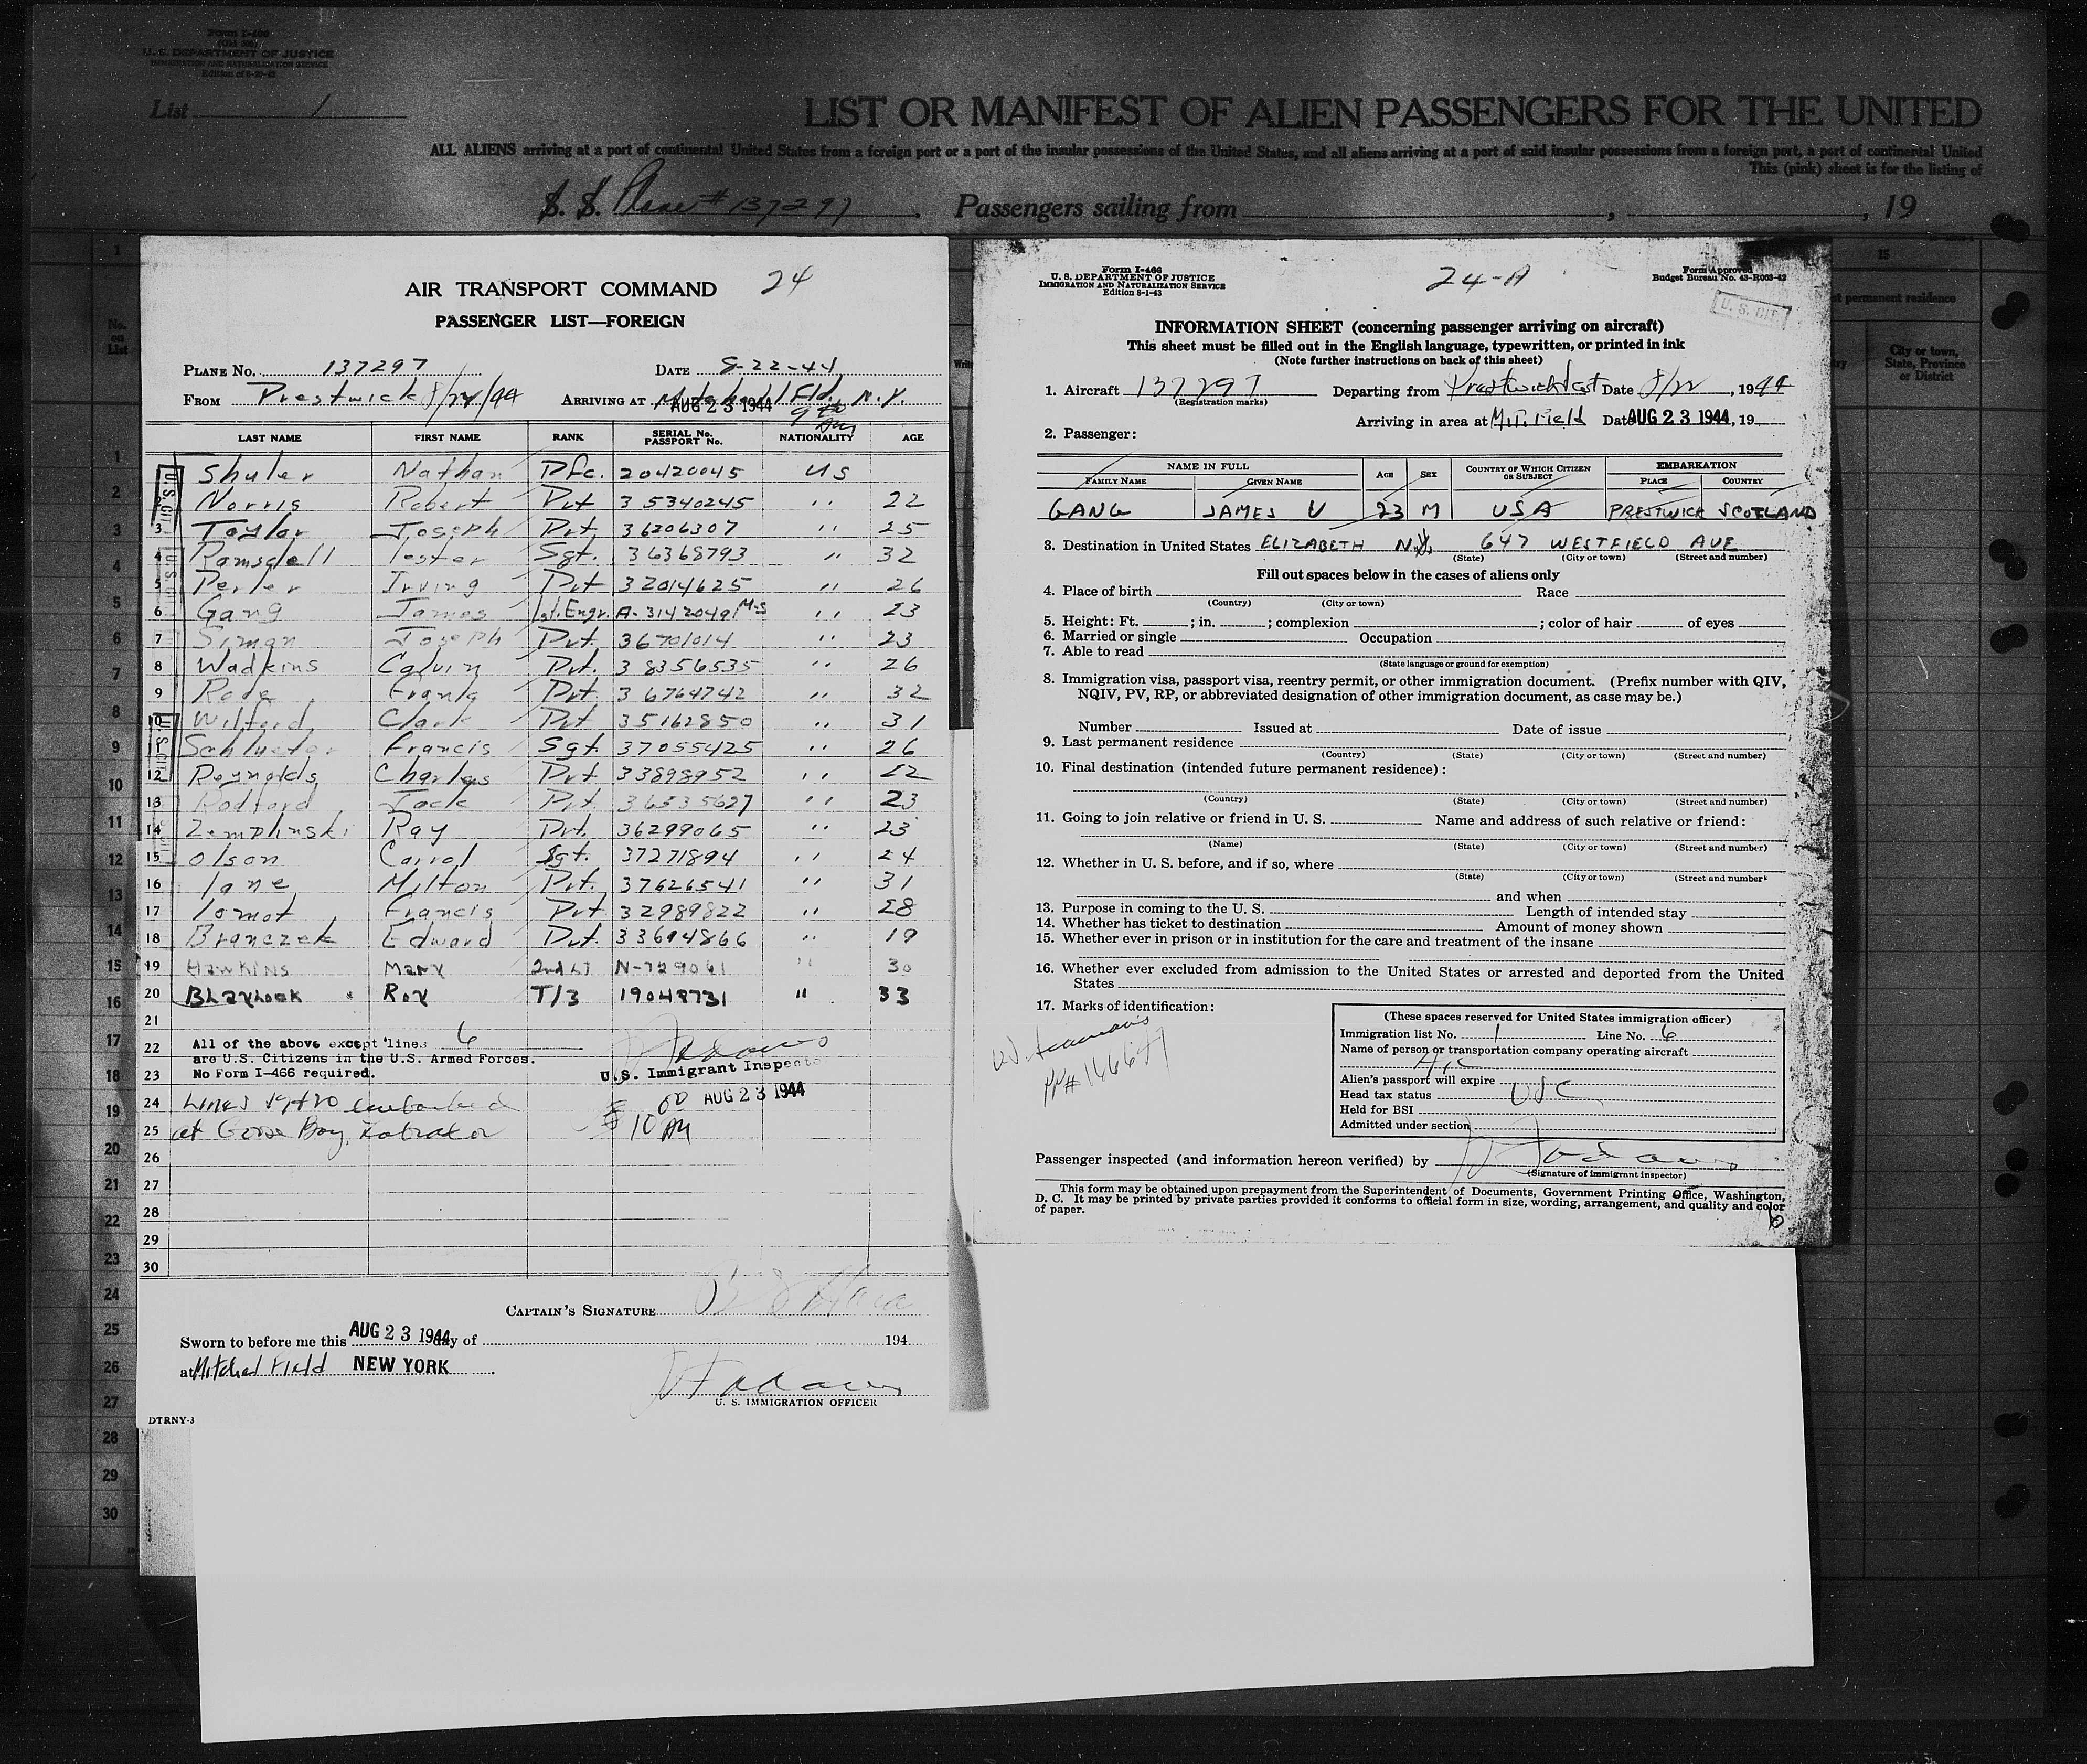 Form I-466
U. S. DEPARTMENT OF JUSTICE
IMMIGRATION AND NATURALIZATION SERVICE
List 1
LIST OR MANIFEST OF ALIEN PASSENGERS FOR THE UNITED
ALL ALIENS arriving at a port of continental United States from a foreign port or a port of the insular possessions of the United States, and all aliens arriving at a port of said insular possessions from a foreign port, a port of continental United
This (pink) sheet is for the listing of
S. S. Plane # 137297 Passengers sailing from , , 19
AIR TRANSPORT COMMAND 24
PASSENGER LIST—FOREIGN
PLANE No. 137297 DATE 8-22-44
FROM Prestwick 8/22/44 ARRIVING AT Mitchell Fld. N.Y.
AUG 23 1944
LAST NAME FIRST NAME RANK SERIAL No. PASSPORT No. NATIONALITY AGE
Shuler Nathan Pfc. 20420045 US
Norris Robert Pvt 35340245 " 22
3 Taylor Joseph Pvt. 36206307 " 25
4 Ramsdell Lester Sgt. 36368793 " 32
5 Perler Irving Pvt 32014625 " 26
6 Gang James 1st. Engr. A-3142049 M-S " 23
7 Simon Joseph Pvt. 36701014 " 23
8 Wadkins Calvin Pvt. 38356535 " 26
9 Frank Pvt. 36764742 " 32
10 Wilford Clark Pvt 35162850 " 31
11 Schlueter Francis Sgt. 37055425 " 26
12 Reynolds Charles Pvt 33898952 " 22
13 Radford Jack Pvt. 36535627 " 23
14 Zemplinski Ray Pvt. 36299065 " 23
15 Olson Carrol Sgt. 37271894 " 24
16 Lane Milton Pvt. 37626541 " 31
17 Lomot Francis Pvt 32989822 " 28
18 Branczek Edward Pvt. 33614866 " 19
19 Hawkins Mary 2nd Lt N-729061 " 30
20 Blaylock Roy T/3 19048731 " 33
21
22 All of the above except lines 6
are U.S. Citizens in the U.S. Armed Forces.
23 No Form I-466 required.
U.S. Immigrant Inspector
AUG 23 1944
24 Lines 19+20 embarked
25 at Goose Bay, Labrador
10 AM
26
27
28
29
30
CAPTAIN'S SIGNATURE
Sworn to before me this AUG 23 1944 day of 194
at Mitchel Field NEW YORK
U. S. IMMIGRATION OFFICER
DTRNY-3
Form I-466
U. S. DEPARTMENT OF JUSTICE
IMMIGRATION AND NATURALIZATION SERVICE
Edition 8-1-43
24-A
Form Approved
Budget Bureau No. 43-R063-42
U. S. CIT.
INFORMATION SHEET (concerning passenger arriving on aircraft)
This sheet must be filled out in the English language, typewritten, or printed in ink
(Note further instructions on back of this sheet)
1. Aircraft 137297 Departing from Prestwick Date 8/22, 1944
(Registration marks)
Arriving in area at Field Date AUG 23 1944, 19
2. Passenger:
NAME IN FULL AGE SEX COUNTRY OF WHICH CITIZEN OR SUBJECT EMBARKATION
FAMILY NAME GIVEN NAME PLACE COUNTRY
GANG JAMES V 23 M USA PRESTWICK SCOTLAND
3. Destination in United States ELIZABETH N.J. 647 WESTFIELD AVE
(State) (City or town) (Street and number)
Fill out spaces below in the cases of aliens only
4. Place of birth Race
(Country) (City or town)
5. Height: Ft. ; in. ; complexion ; color of hair of eyes
6. Married or single Occupation
7. Able to read
(State language or ground for exemption)
8. Immigration visa, passport visa, reentry permit, or other immigration document. (Prefix number with QIV,
NQIV, PV, RP, or abbreviated designation of other immigration document, as case may be.)
Number Issued at Date of issue
9. Last permanent residence
(Country) (State) (City or town) (Street and number)
10. Final destination (intended future permanent residence):
(Country) (State) (City or town) (Street and number)
11. Going to join relative or friend in U. S. Name and address of such relative or friend:
(Name) (State) (City or town) (Street and number)
12. Whether in U. S. before, and if so, where
(State) (City or town) (Street and number)
and when
13. Purpose in coming to the U. S. Length of intended stay
14. Whether has ticket to destination Amount of money shown
15. Whether ever in prison or in institution for the care and treatment of the insane
16. Whether ever excluded from admission to the United States or arrested and deported from the United
States
17. Marks of identification:
(These spaces reserved for United States immigration officer)
Immigration list No. 1 Line No. 6
Name of person or transportation company operating aircraft
Alien's passport will expire
Head tax status USC
Held for BSI
Admitted under section
Passenger inspected (and information hereon verified) by
(Signature of immigrant inspector)
This form may be obtained upon prepayment from the Superintendent of Documents, Government Printing Office, Washington,
D. C. It may be printed by private parties provided it conforms to official form in size, wording, arrangement, and quality and color
of paper.
15
permanent residence
City or town,
State, Province
or District
No.
on
List